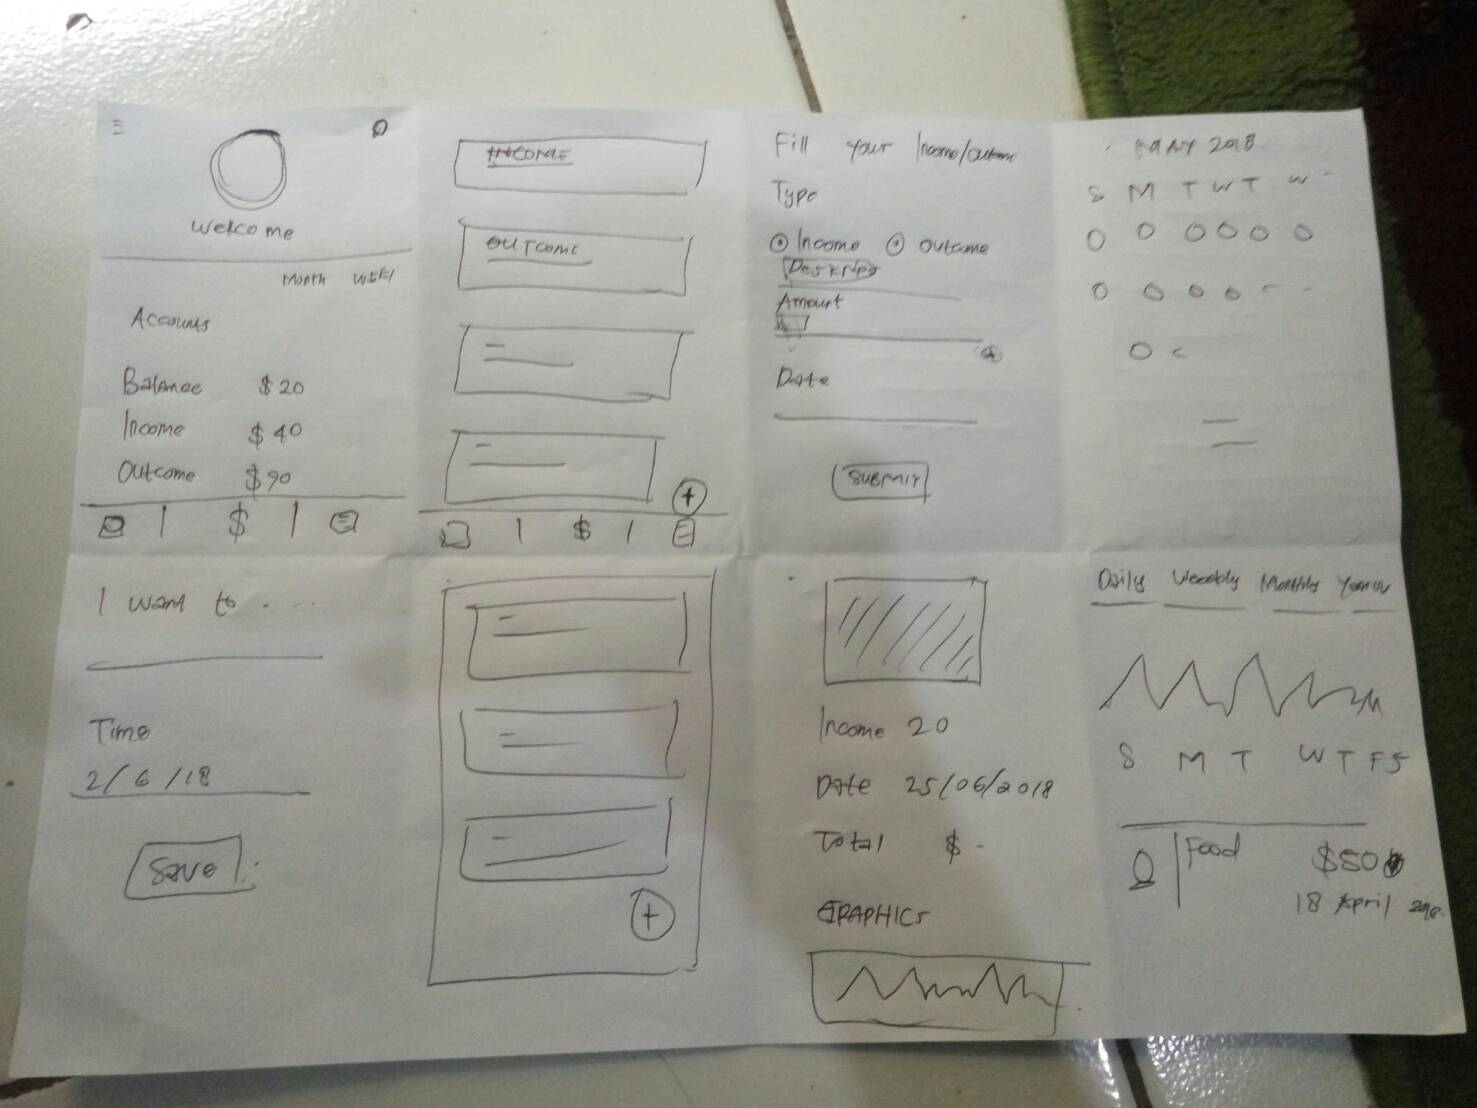 Welcome
Month Week
Accounts
Balance $20
Income $40
Outcome $90
$
INCOME
OUTCOME
+
$
Fill Your Income/Outcome
Type
Income Outcome
Amount
Date
SUBMIT
MAY 2018
S M T W T
I want to ....
Time
2/6/18
Save
+
Income 20
Date 25/06/2018
Total $ -
GRAPHICS
Daily Weeekly Monthly
S M T W T F S
Food $50
18 April 2018